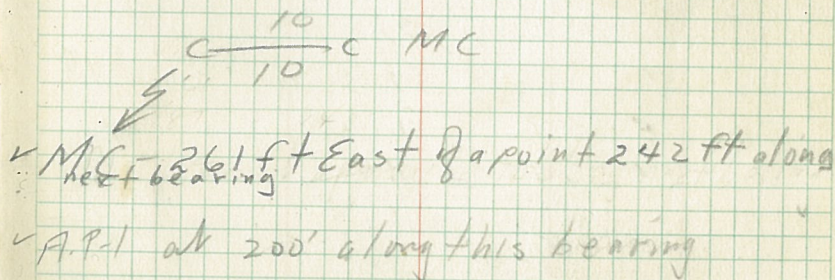 10
C C MC
10
MC - 261 ft East of a point 242 ft along
next bearing
A.P-1 at 200' along this bearing